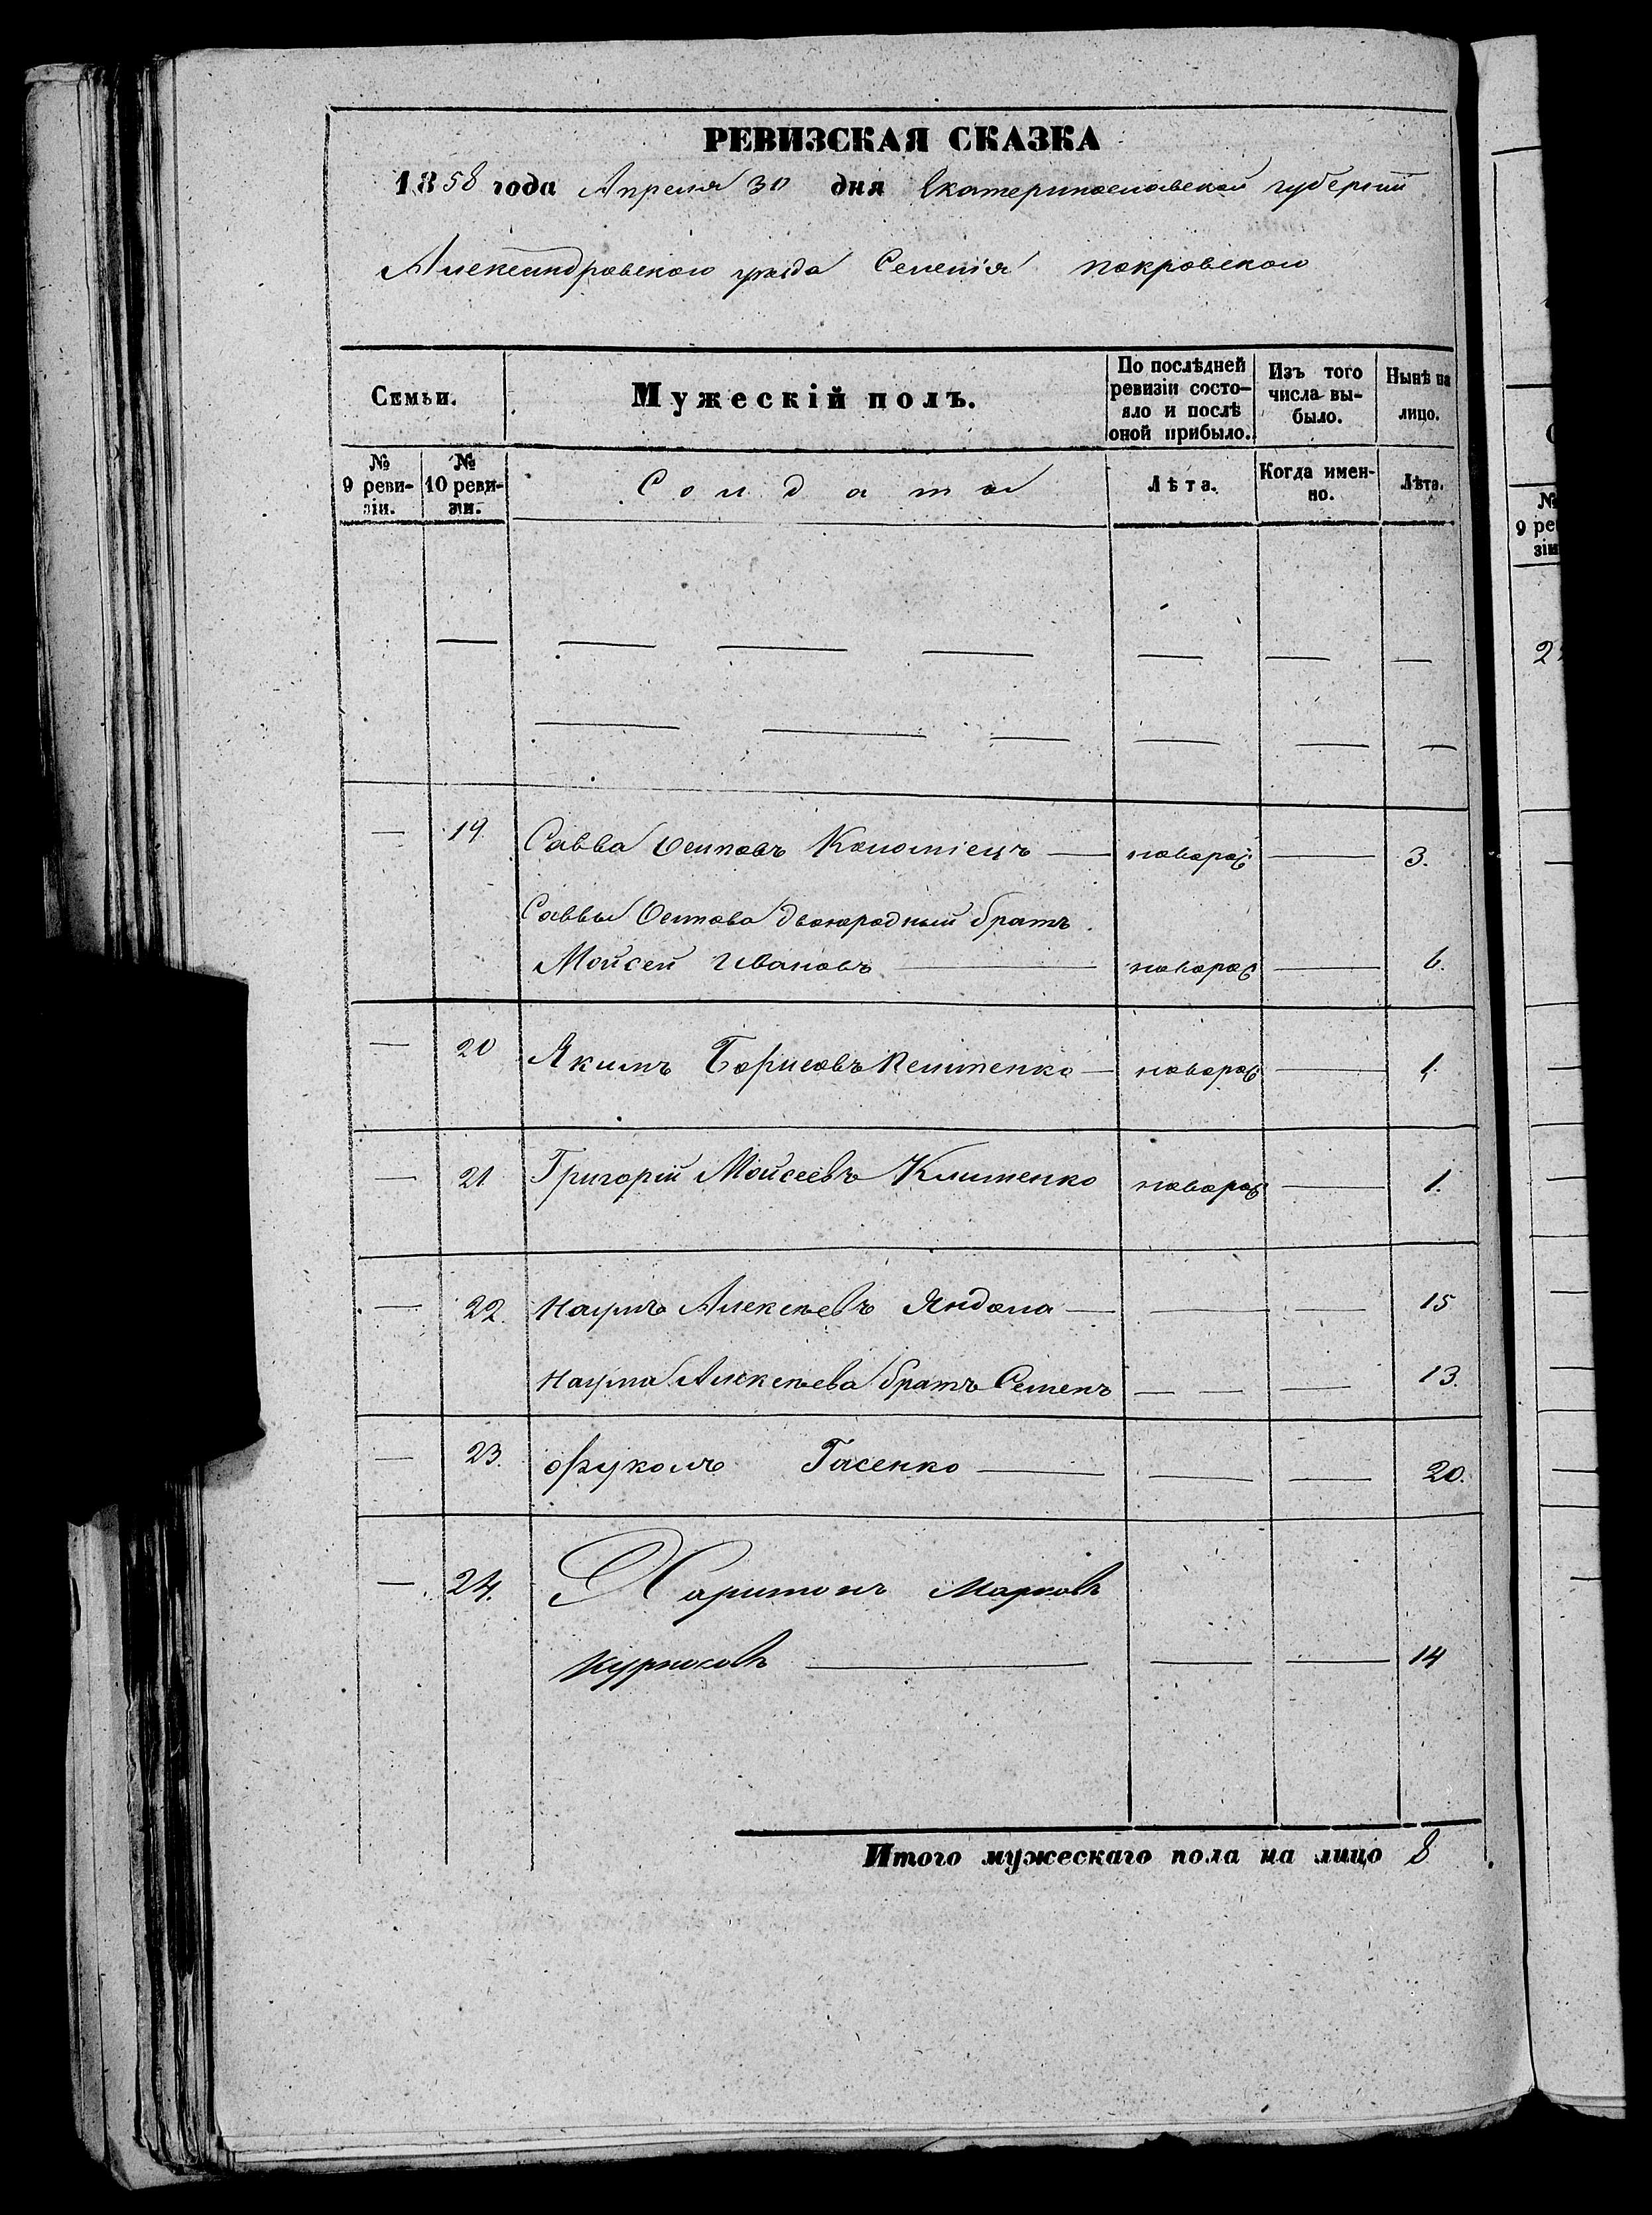 РЕВИЗСКАЯ СКАЗКА
1858 года Апреля 30 дня Екатеринославской губернии
Александровского уезда Селенія покровского
Семьи.
Мужескій полъ.
По послѣдней ревизіи состояло и послѣ оной прибыло.
Изъ того числа выбыло.
Нынѣ на лицо.
№ 9 ревизіи.
№ 10 ревизіи.
Солдаты
Лѣта.
Когда именно.
Лѣта.
— 19. Савва Осиповъ Коломіецъ — новорož — 3.
Саввы Осипова двоюродный братъ
Мойсей Ивановъ — новорож — 6.
— 20 Якимъ Борисовъ — новорож — 1.
— 21. Григорій Мойсеевъ Клименко новорож — 1.
— 22. Наумъ Алексѣевъ Яндола — — — 15
Наума Алексѣева братъ Семенъ — — — 13.
— 23. Гасенко — — — 20.
— 24. Харитонъ Марковъ
Курносовъ — — — 14
Итого мужескаго пола на лицо 8
№
9 рев
зіи
2